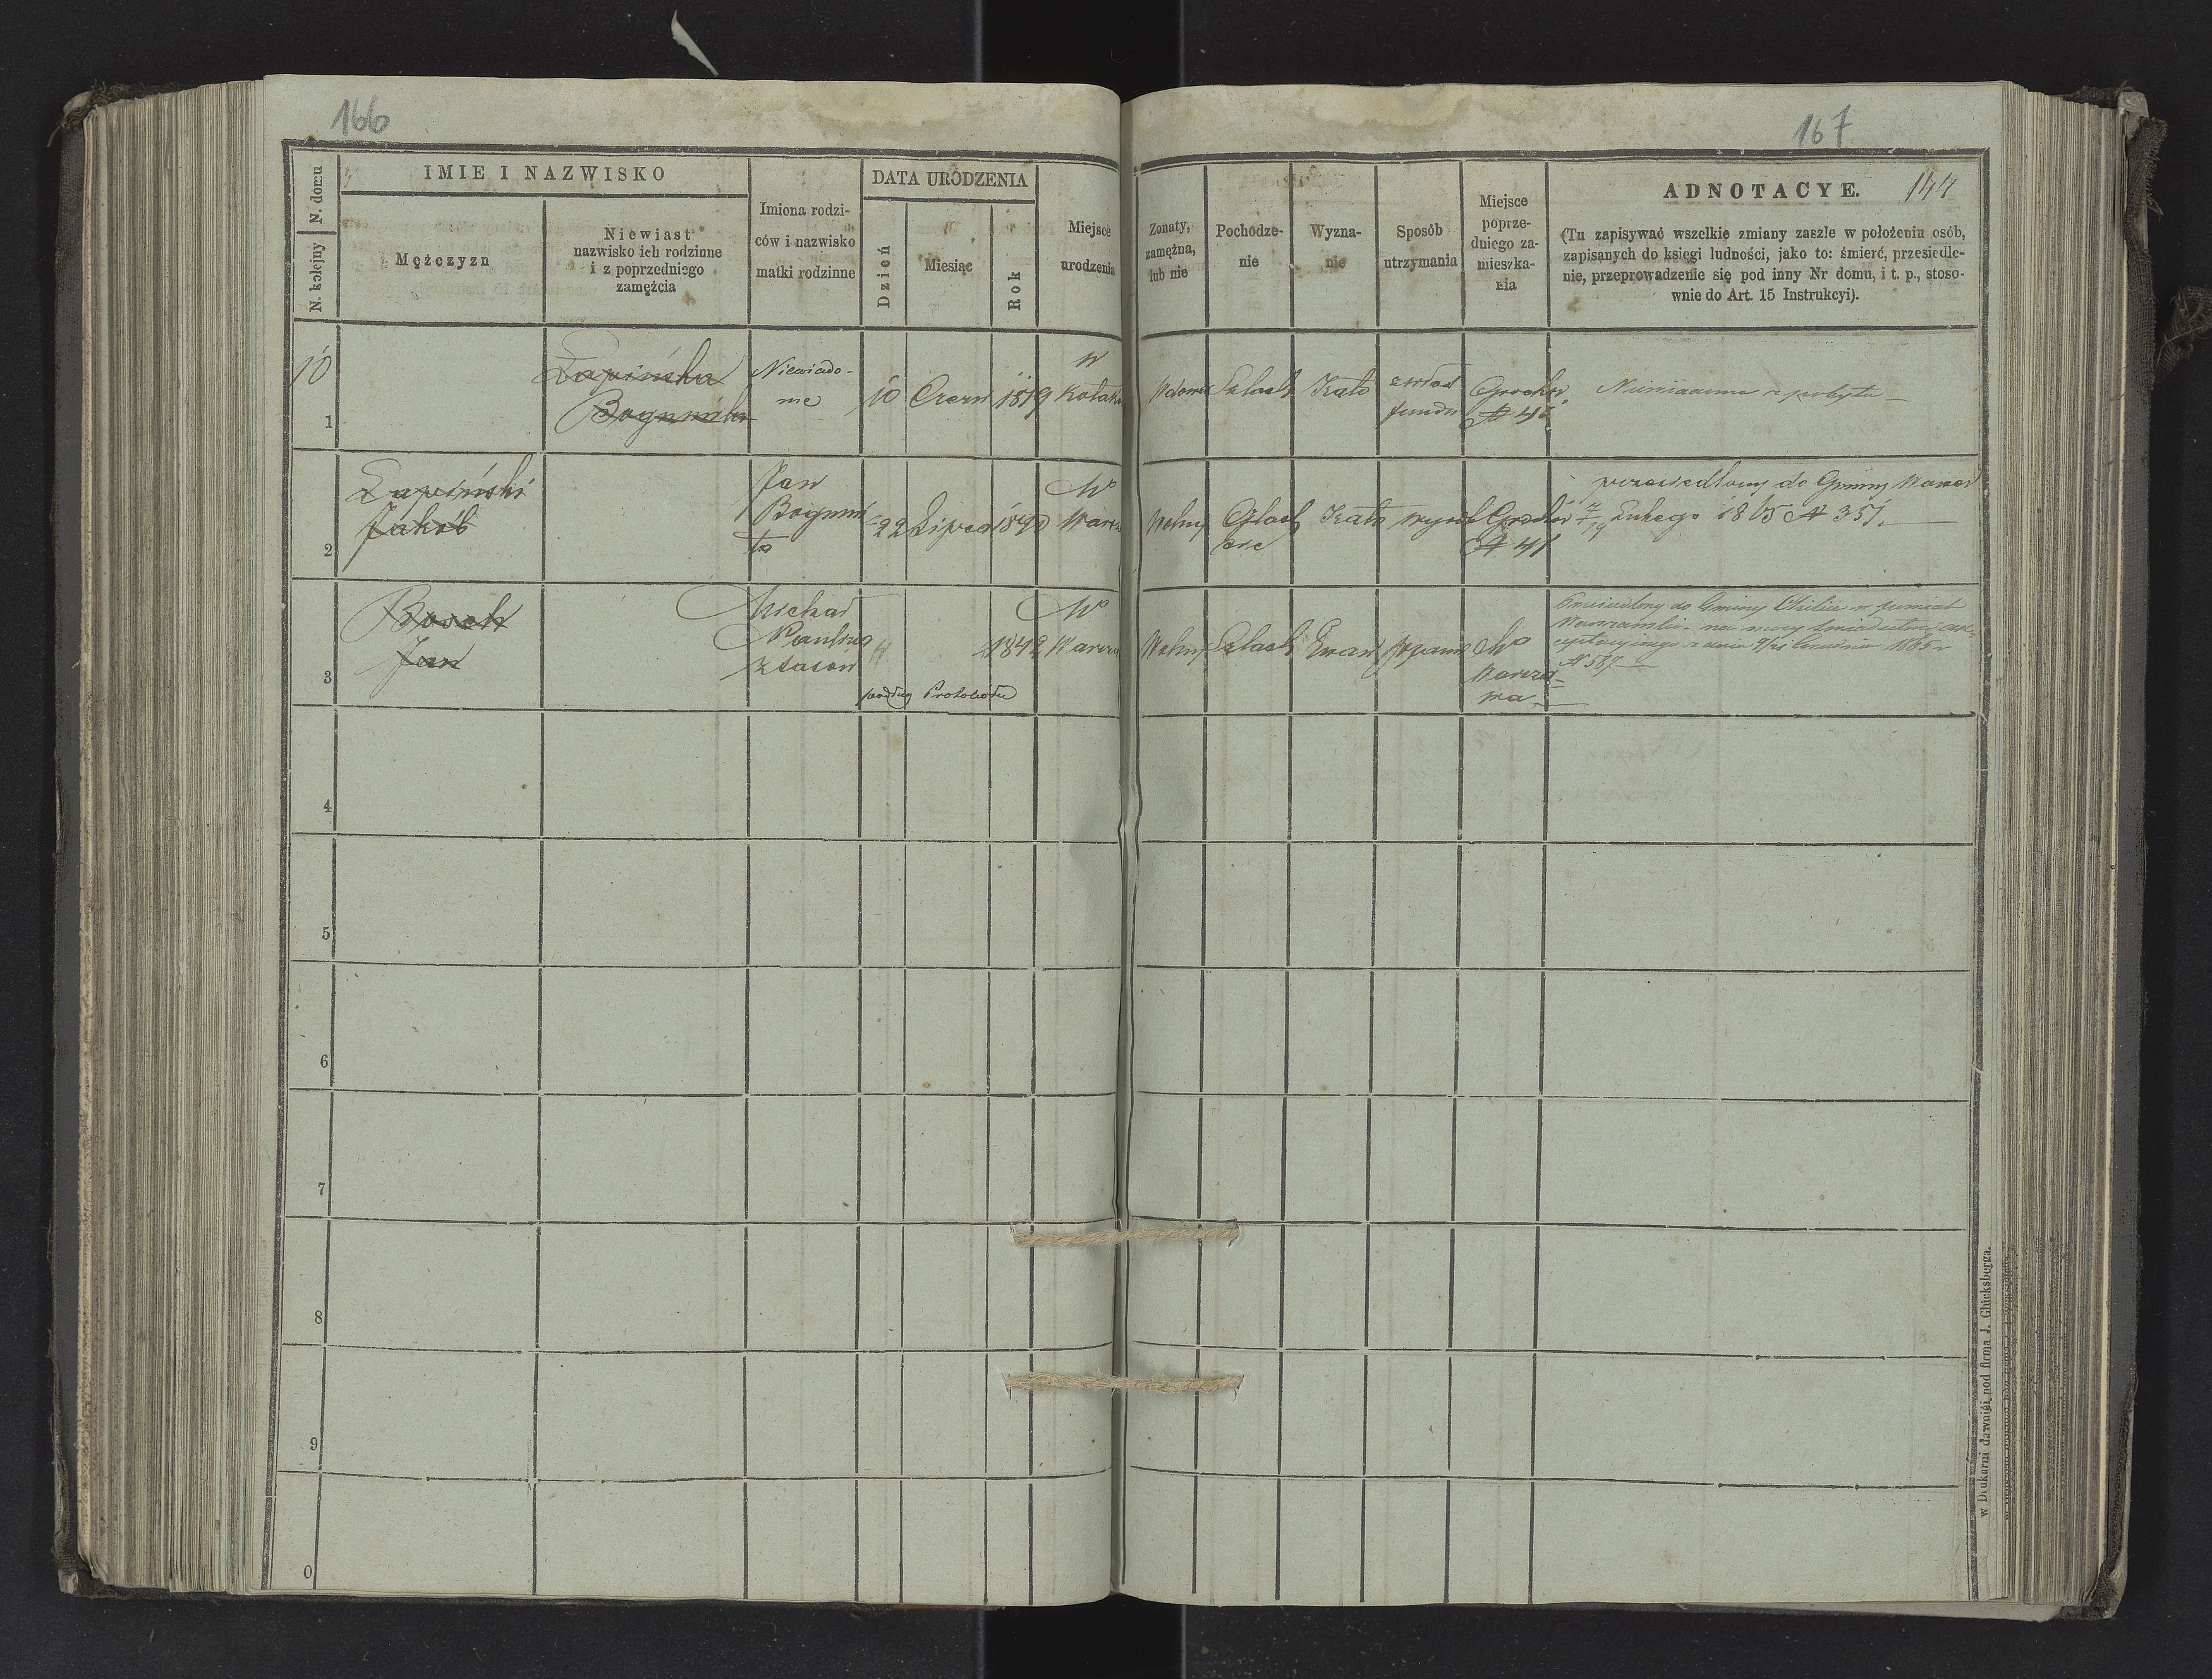 166
167
144
N. kolejny
N. domu
IMIE I NAZWISKO
Mężczyzn
Niewiast
nazwisko ich rodzinne
i z poprzedniego
zamężcia
Imiona rodzi-
ców i nazwisko
matki rodzinne
DATA URODZENIA
Dzień
Miesiąc
Rok
Miejsce
urodzenia
Zonaty,
zamężna,
lub nie
Pochodze-
nie
Wyzna-
nie
Sposób
utrzymania
Miejsce
poprze-
dniego za-
mieszka-
nia
ADNOTACYE.
(Tu zapisywać wszelkie zmiany zaszłe w położeniu osób,
zapisanych do księgi ludności, jako to: śmierć, przesiedle-
nie, przeprowadzenie się pod inny Nr domu, i t. p., stoso-
wnie do Art. 15 Instrukcyi).
10
1
Łapińska
Bogumiła
Niewiado-
me
10
Czerw
1819
w
Wdowa
Szlach
Kato
z włas
fundu
Grochów
№ 41
Niewiadoma z pobytu
2
Łapiński
Jakób
Jan
Bogumi
ła
22
Lipca
1840
M
Warsz
Wolny
Szlach
Kato
wyrob
Grochów
№ 41
przesiedlony do Gminy Wawer
Lutego 1865 № 351.
3
Bosch
Jan
Michał
Paulina
1842
M
Warsza
Wolny
Szlach
Ewan
M
Warsza-
wa
podług Protokółu
do Gminy
Warszawski na mocy
1865 r
№ 587
4
5
6
7
8
9
0
w Drukarni dawniéj pod firma J. Glücksberga.